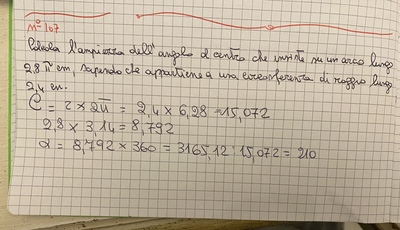 N° 107
Calcola l'ampiezza dell'angolo al centro che insiste su un arco lungo
2,8 π cm, sapendo che appartiene a una circonferenza di raggio lungo
2,4 cm.
C = r × 2π = 2,4 × 6,28 = 15,072
2,8 × 3,14 = 8,792
α = 8,792 × 360 = 3165,12 : 15,072 = 210